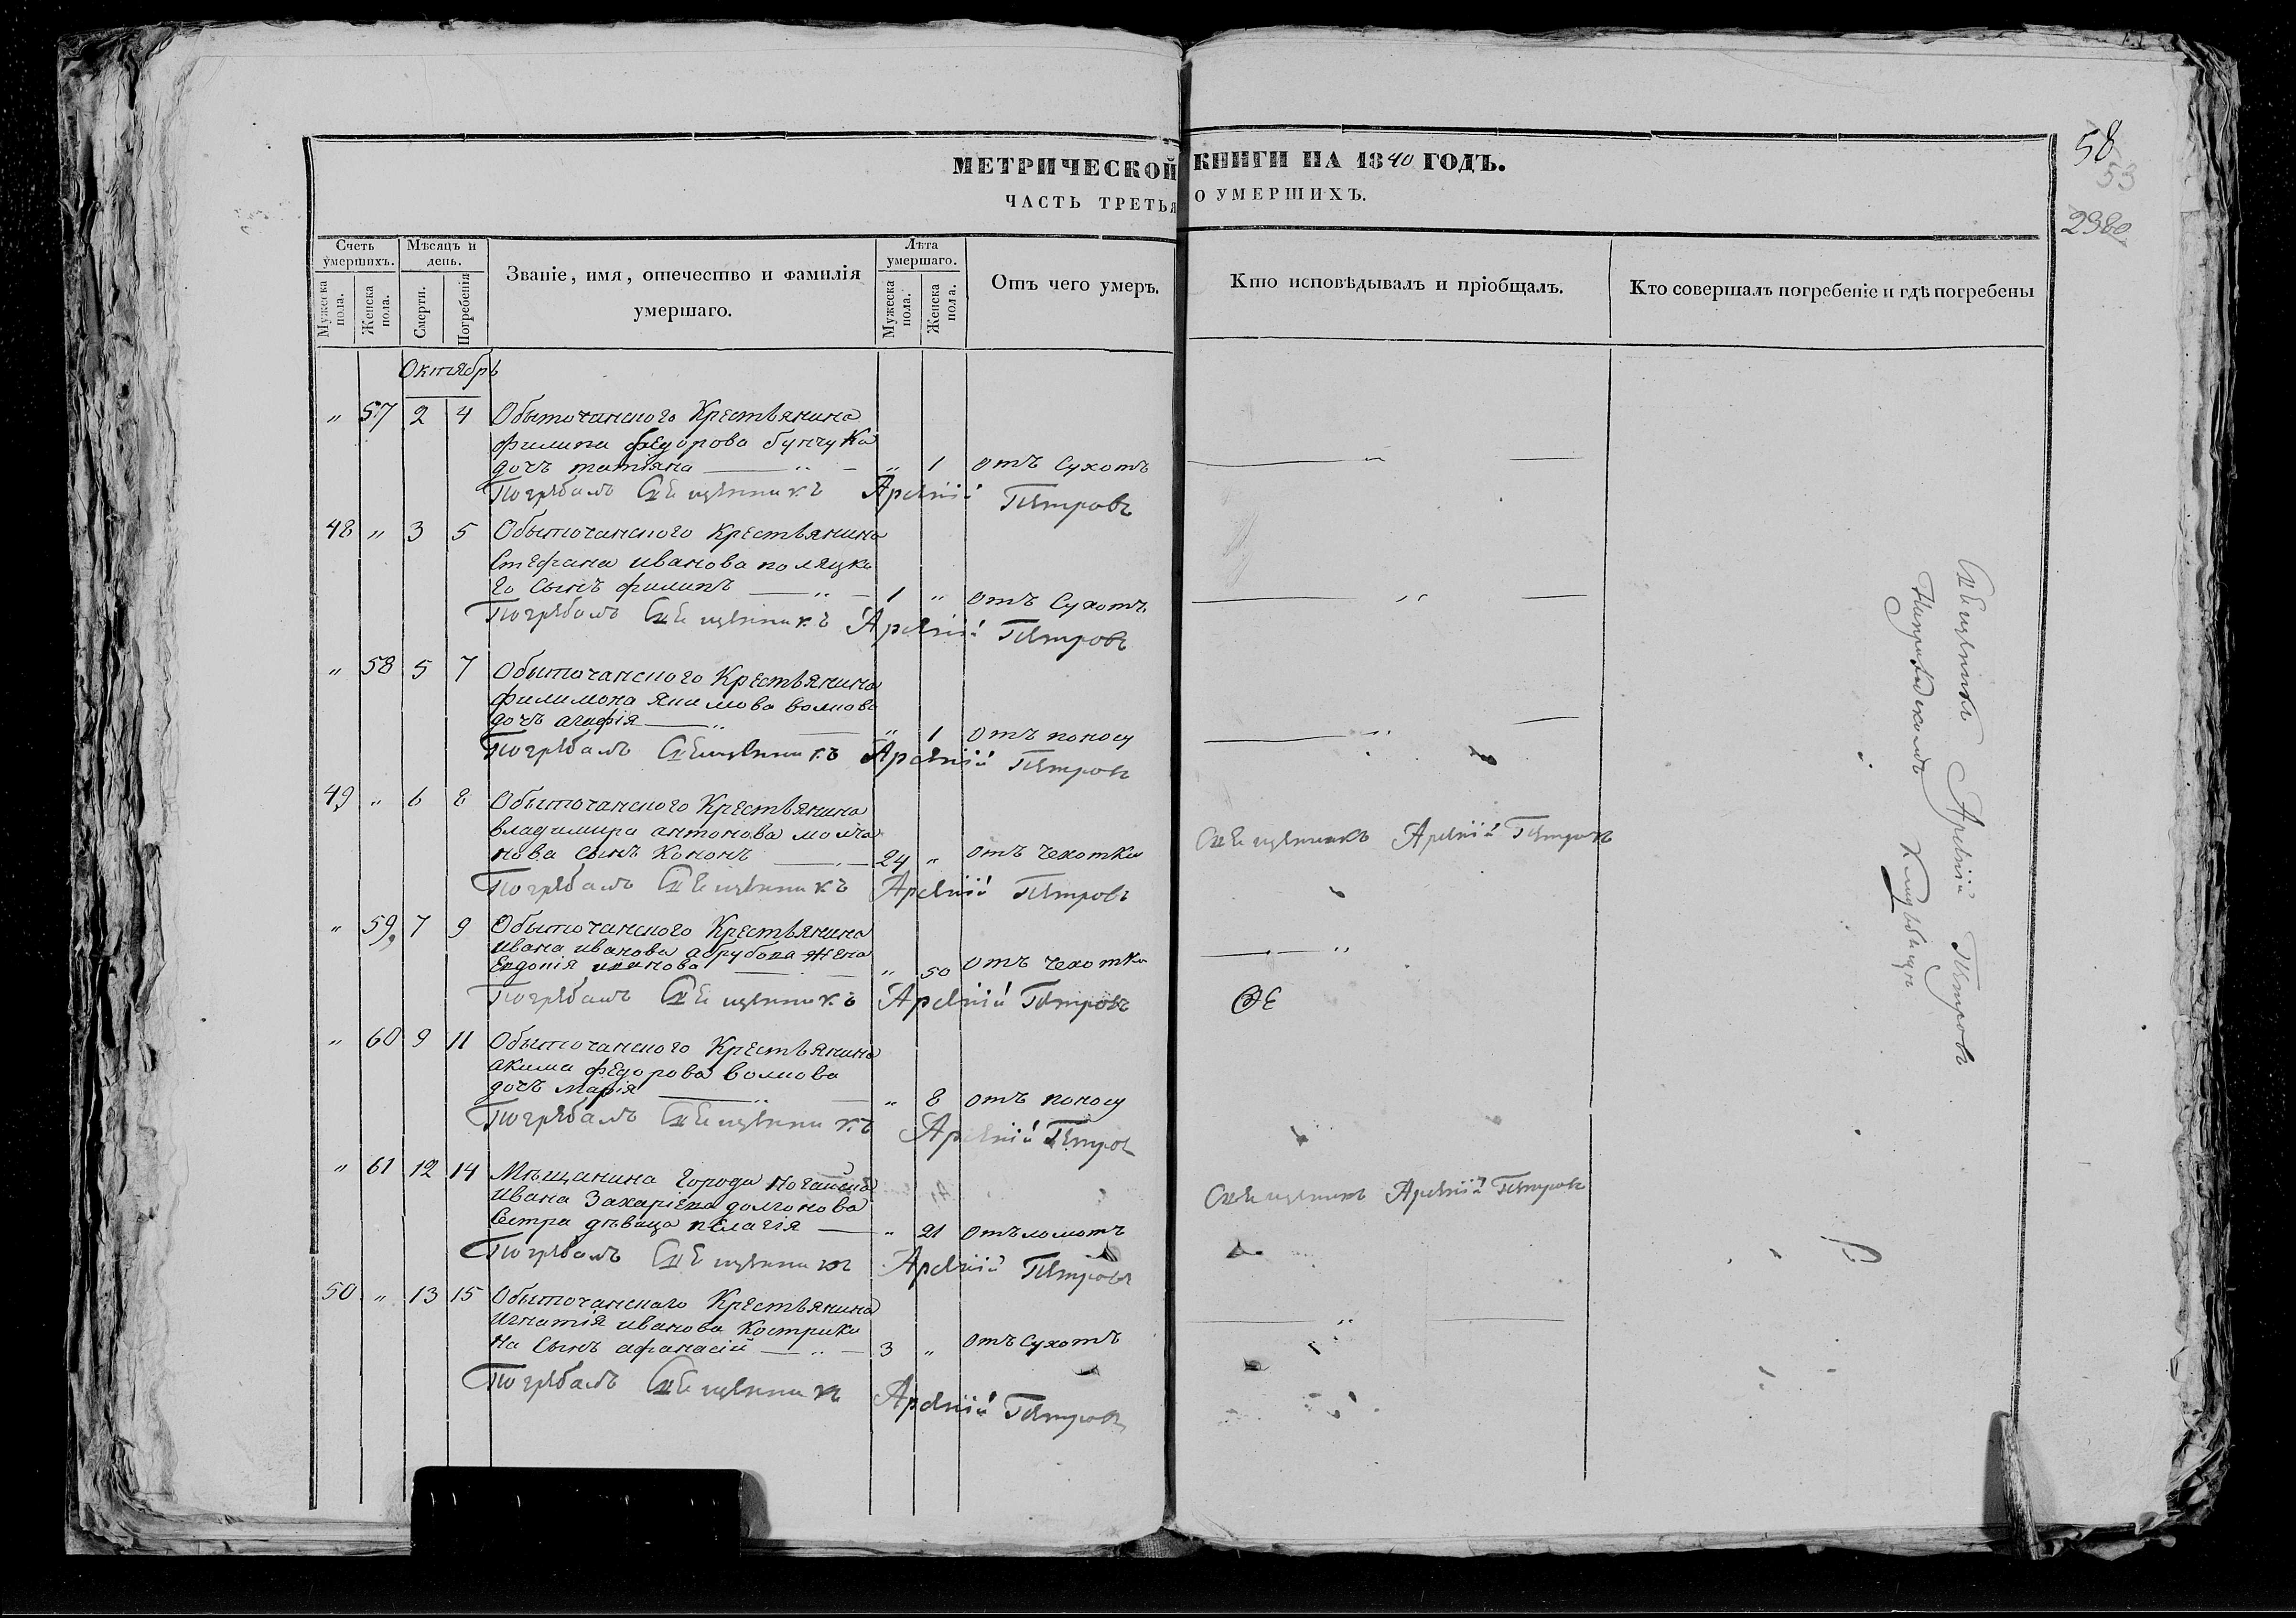 58
53
2380
МЕТРИЧЕСКОЙ КНИГИ НА 1840 ГОДЪ.
ЧАСТЬ ТРЕТЬЯ О УМЕРШИХЪ.
Счетъ умершихъ.
Мужеска пола.
Женска пола.
Мѣсяцъ и день.
Смерти.
Погребенія
Званіе, имя, отечество и фамилія
умершаго.
Лѣта умершаго.
Мужеска пола.
Женска пола.
Отъ чего умеръ.
Кто исповѣдывалъ и пріобщалъ.
Кто совершалъ погребеніе и гдѣ погребены
Октябрь
" 57 2 4 Обыточанского Крестьянина
филипа федорова бунчука
дочъ татіяна — " — " 1 отъ сухотъ — " —
Погребалъ Священникъ Арсеній Петровъ
48 " 3 5 Обыточанского Крестьянина
Стефана иванова поляцко
го сынъ филипъ — " — 1 " отъ Сухотъ — " —
Погребалъ Священникъ Арсеній Петровъ
" 58 5 7 Обыточанского Крестьянина
филимона якимова волкова
дочъ агафія — " — " 1 отъ поносу — " —
Погребалъ Священникъ Арсеній Петровъ
49 " 6 8 Обыточанского Крестьянина
владимира антонова молча
нова сынъ Кононъ — 24 " отъ чехотки Священникъ Арсеній Петровъ
Погребалъ Священникъ Арсеній Петровъ
" 59 7 9 Обыточанского Крестьянина
ивана иванова жена
Евдокія иванова — " 50 отъ чехотки — "
Погребалъ Священникъ Арсеній Петровъ
" 60 9 11 Обыточанского Крестьянина
акима федорова волкова
дочъ марія — " — " 8 отъ поносу
Погребалъ Священникъ Арсеній Петровъ
" 61 12 14 Мѣщанина города ногайска
ивана Захаріева долгонова
Сестра дѣвица пелагія — " 21 отъ ломотъ Священникъ Арсеній Петровъ
Погребалъ Священникъ Арсеній Петровъ
50 " 13 15 Обыточанскаго Крестьянина
игнатія иванова Кострики
на Сынъ афанасій — " — 3 " отъ Сухотъ — " —
Погребалъ Священникъ Арсеній Петровъ
Священникъ Арсеній Петровъ
На приходскомъ Кладбищѣ